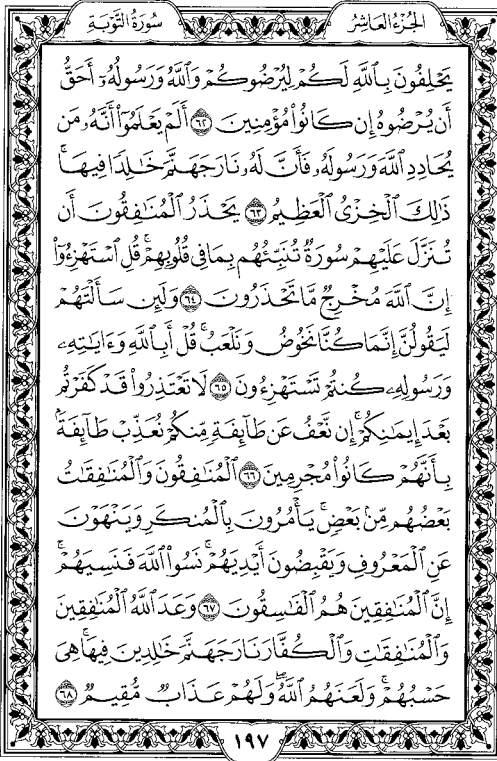 الجُزْءُ العَاشِرُ سُورَةُ التَّوْبَةِ
يَحْلِفُونَ بِٱللَّهِ لَكُمْ لِيُرْضُوكُمْ وَٱللَّهُ وَرَسُولُهُۥٓ أَحَقُّ
أَن يُرْضُوهُ إِن كَانُوا۟ مُؤْمِنِينَ ٦٢ أَلَمْ يَعْلَمُوٓا۟ أَنَّهُۥ مَن
يُحَادِدِ ٱللَّهَ وَرَسُولَهُۥ فَأَنَّ لَهُۥ نَارَ جَهَنَّمَ خَـٰلِدًا فِيهَا ۚ
ذَٰلِكَ ٱلْخِزْىُ ٱلْعَظِيمُ ٦٣ يَحْذَرُ ٱلْمُنَـٰفِقُونَ أَن
تُنَزَّلَ عَلَيْهِمْ سُورَةٌ تُنَبِّئُهُم بِمَا فِى قُلُوبِهِمْ ۚ قُلِ ٱسْتَهْزِءُوٓا۟
إِنَّ ٱللَّهَ مُخْرِجٌ مَّا تَحْذَرُونَ ٦٤ وَلَئِن سَأَلْتَهُمْ
لَيَقُولُنَّ إِنَّمَا كُنَّا نَخُوضُ وَنَلْعَبُ ۚ قُلْ أَبِٱللَّهِ وَءَايَـٰتِهِۦ
وَرَسُولِهِۦ كُنتُمْ تَسْتَهْزِءُونَ ٦٥ لَا تَعْتَذِرُوا۟ قَدْ كَفَرْتُم
بَعْدَ إِيمَـٰنِكُمْ ۚ إِن نَّعْفُ عَن طَآئِفَةٍ مِّنكُمْ نُعَذِّبْ طَآئِفَةًۢ
بِأَنَّهُمْ كَانُوا۟ مُجْرِمِينَ ٦٦ ٱلْمُنَـٰفِقُونَ وَٱلْمُنَـٰفِقَـٰتُ
بَعْضُهُم مِّنۢ بَعْضٍ ۚ يَأْمُرُونَ بِٱلْمُنكَرِ وَيَنْهَوْنَ
عَنِ ٱلْمَعْرُوفِ وَيَقْبِضُونَ أَيْدِيَهُمْ ۚ نَسُوا۟ ٱللَّهَ فَنَسِيَهُمْ ۗ
إِنَّ ٱلْمُنَـٰفِقِينَ هُمُ ٱلْفَـٰسِقُونَ ٦٧ وَعَدَ ٱللَّهُ ٱلْمُنَـٰفِقِينَ
وَٱلْمُنَـٰفِقَـٰتِ وَٱلْكُفَّارَ نَارَ جَهَنَّمَ خَـٰلِدِينَ فِيهَا ۚ هِىَ
حَسْبُهُمْ ۚ وَلَعَنَهُمُ ٱللَّهُ ۖ وَلَهُمْ عَذَابٌ مُّقِيمٌ ٦٨
١٩٧